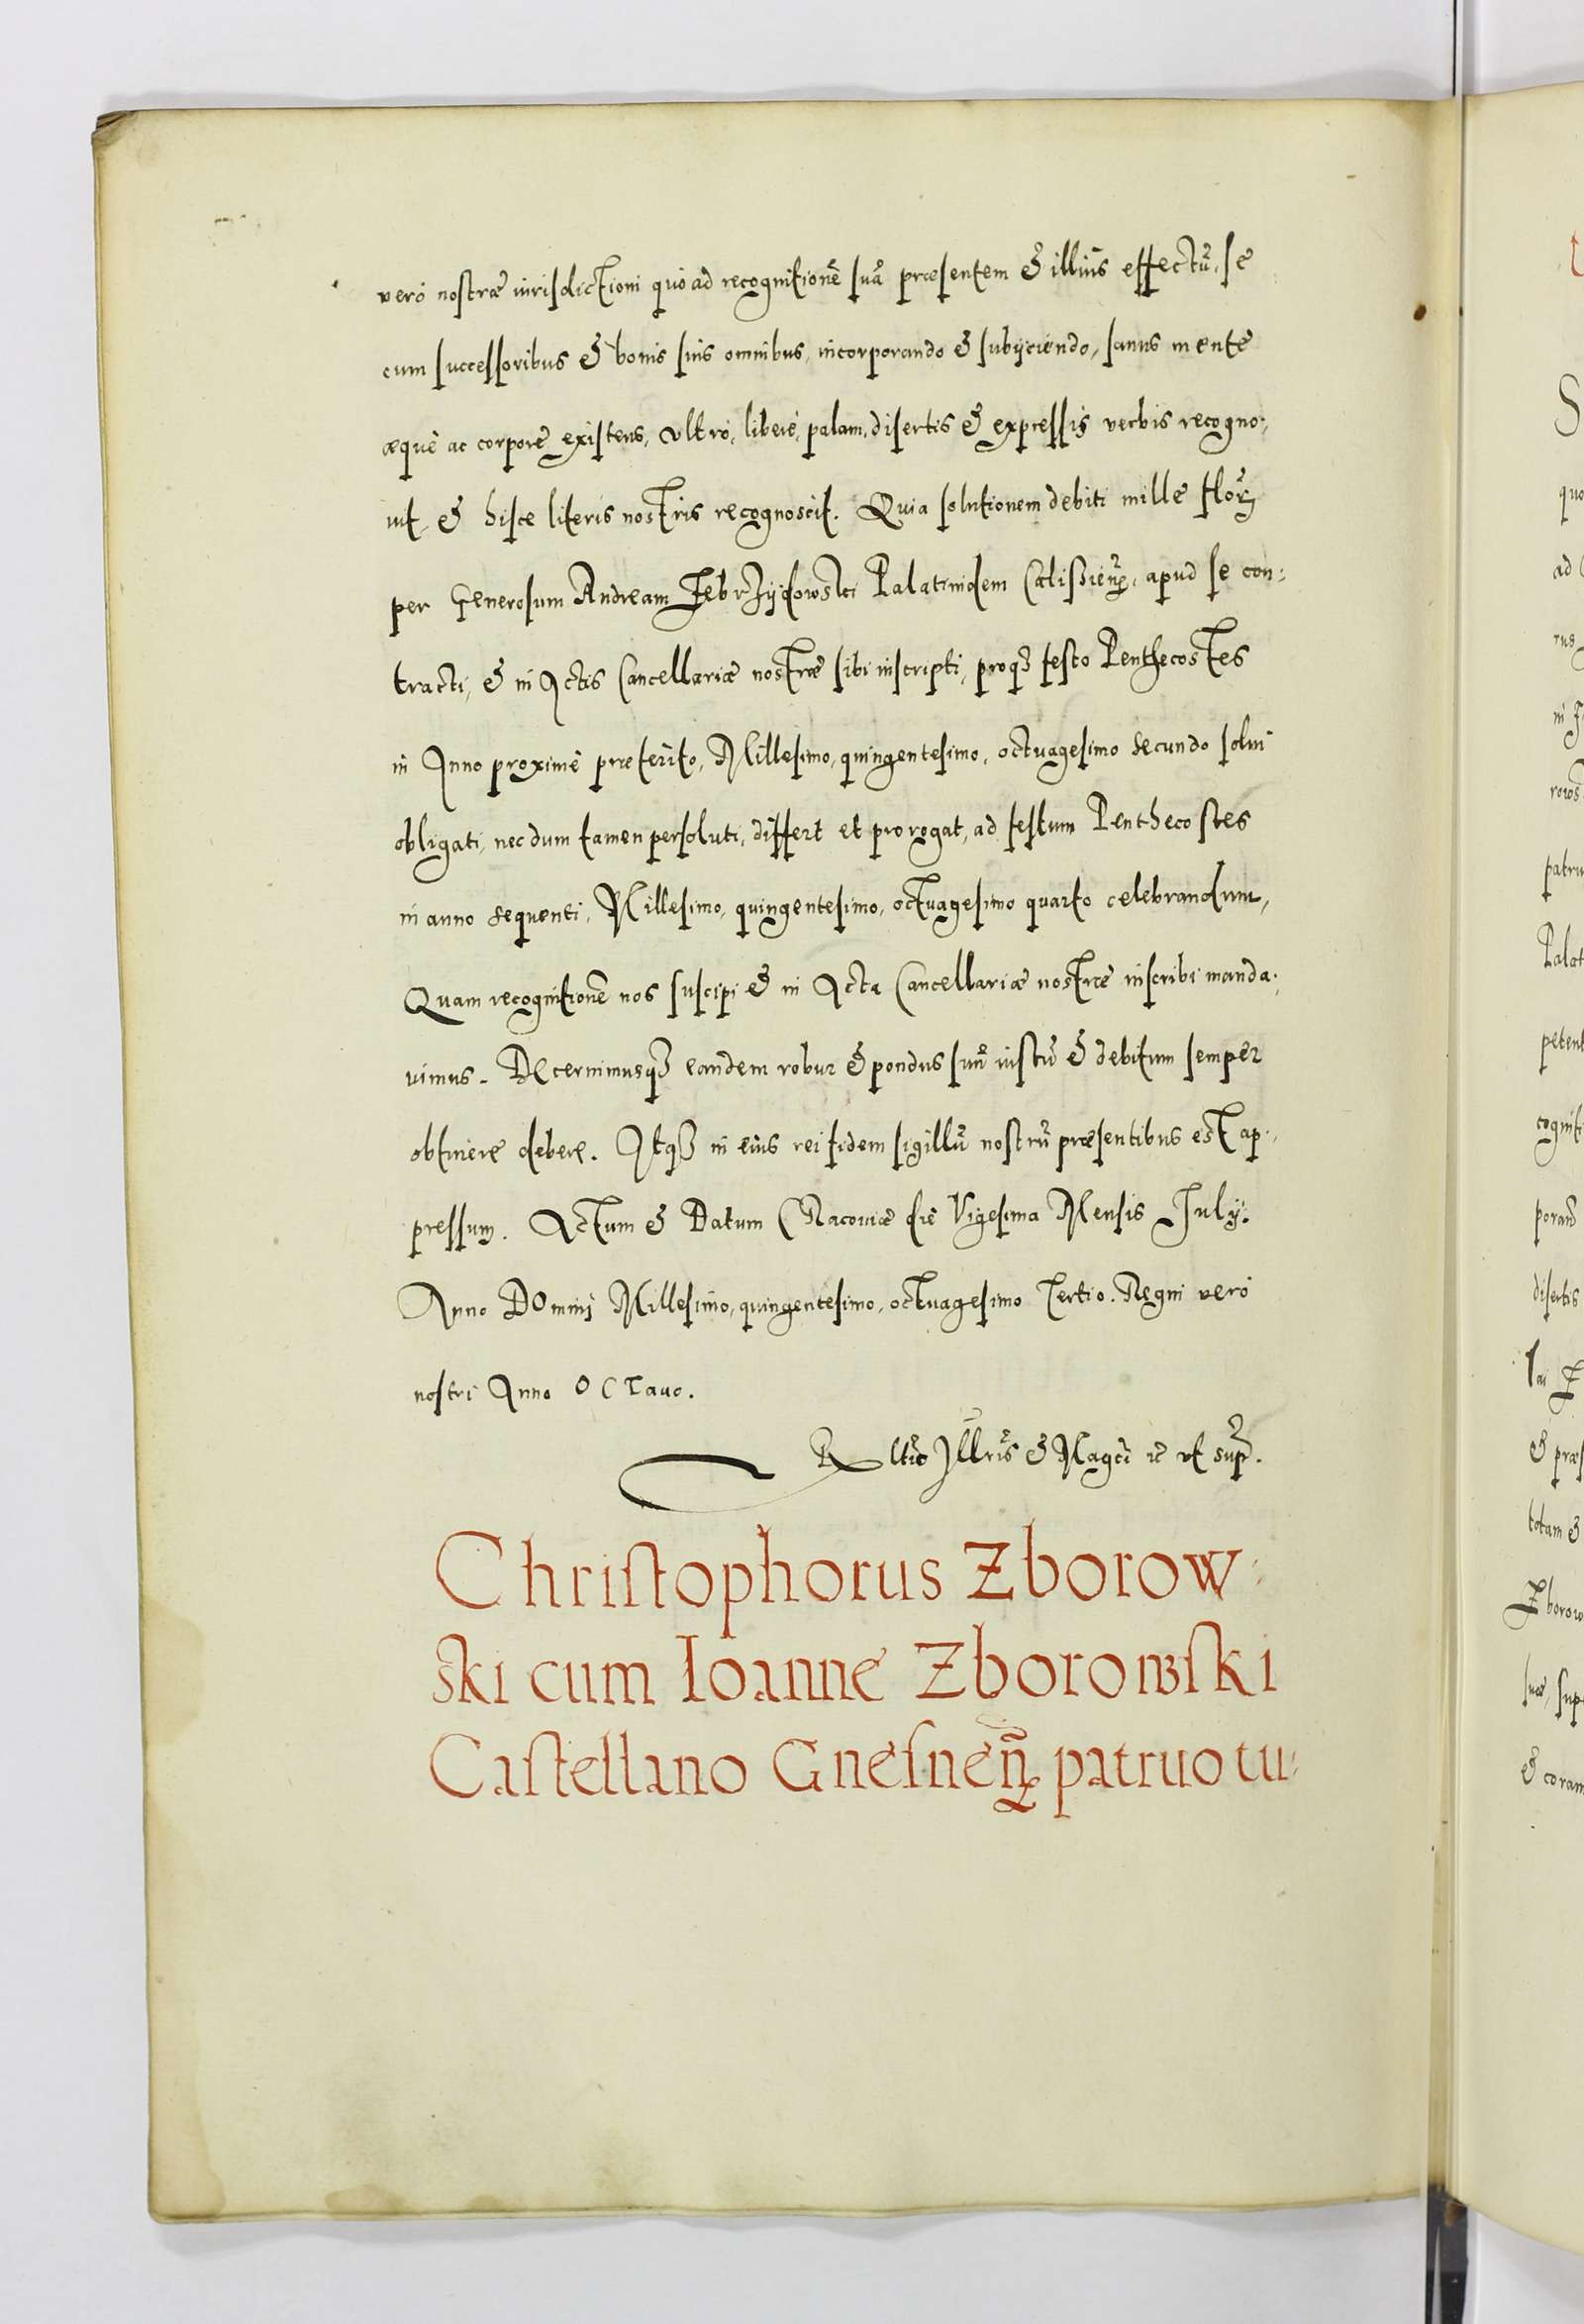 vero nostræ iurisdictioni quo ad recognitionē suā præsentem & illius effectū, se
cum successoribus & bonis suis omnibus, incorporando & subyciendo, sanus mente
æque ac corpore existens, vltro, libere, palam, disertis & expressis verbis recogno:
uit, & hisce literis nostris recognoscit. Quia solutionem debiti mille flor
per Generosum Andream Zebrzydowski Palatinidem Calissień, apud se con:
tracti, & in Actis Cancellariæ nostræ sibi inscripti, proq3 festo Penthecostes
in Anno proxime præterito, Millesimo, quingentesimo, octuagesimo secundo solui
obligati, nec dum tamen persoluti, differt et prorogat, ad festum Penthecostes
in anno sequenti, Millesimo, quingentesimo, octuagesimo quarto celebrandum,
Quam recognitionē nos suscipi & in Acta Cancellariæ nostræ inscribi manda:
uimus. Decernimusq3 eandem robur & pondus suū iustū & debitum semper
obtinere debere. Itq3 in eius rei fidem sigillū nostrū præsentibus est ap:
pressum. Actum & Datum Cracouiæ die Vigesima Mensis July.
Anno Domini Millesimo, quingentesimo, octuagesimo Tertio. Regni vero
nostri Anno Octauo.
Rltio Illris & Magci ic vt sup.
Christophorus Zborow:
ski cum Ioanne Zborowski
Castellano Gnesneñ patruo tu: